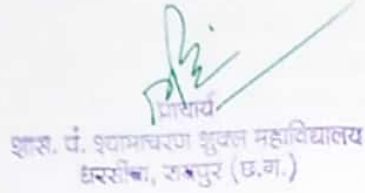 प्राचार्य
शास. पं. श्यामाचरण शुक्ल महाविद्यालय
धरसींवा, रायपुर (छ.ग.)